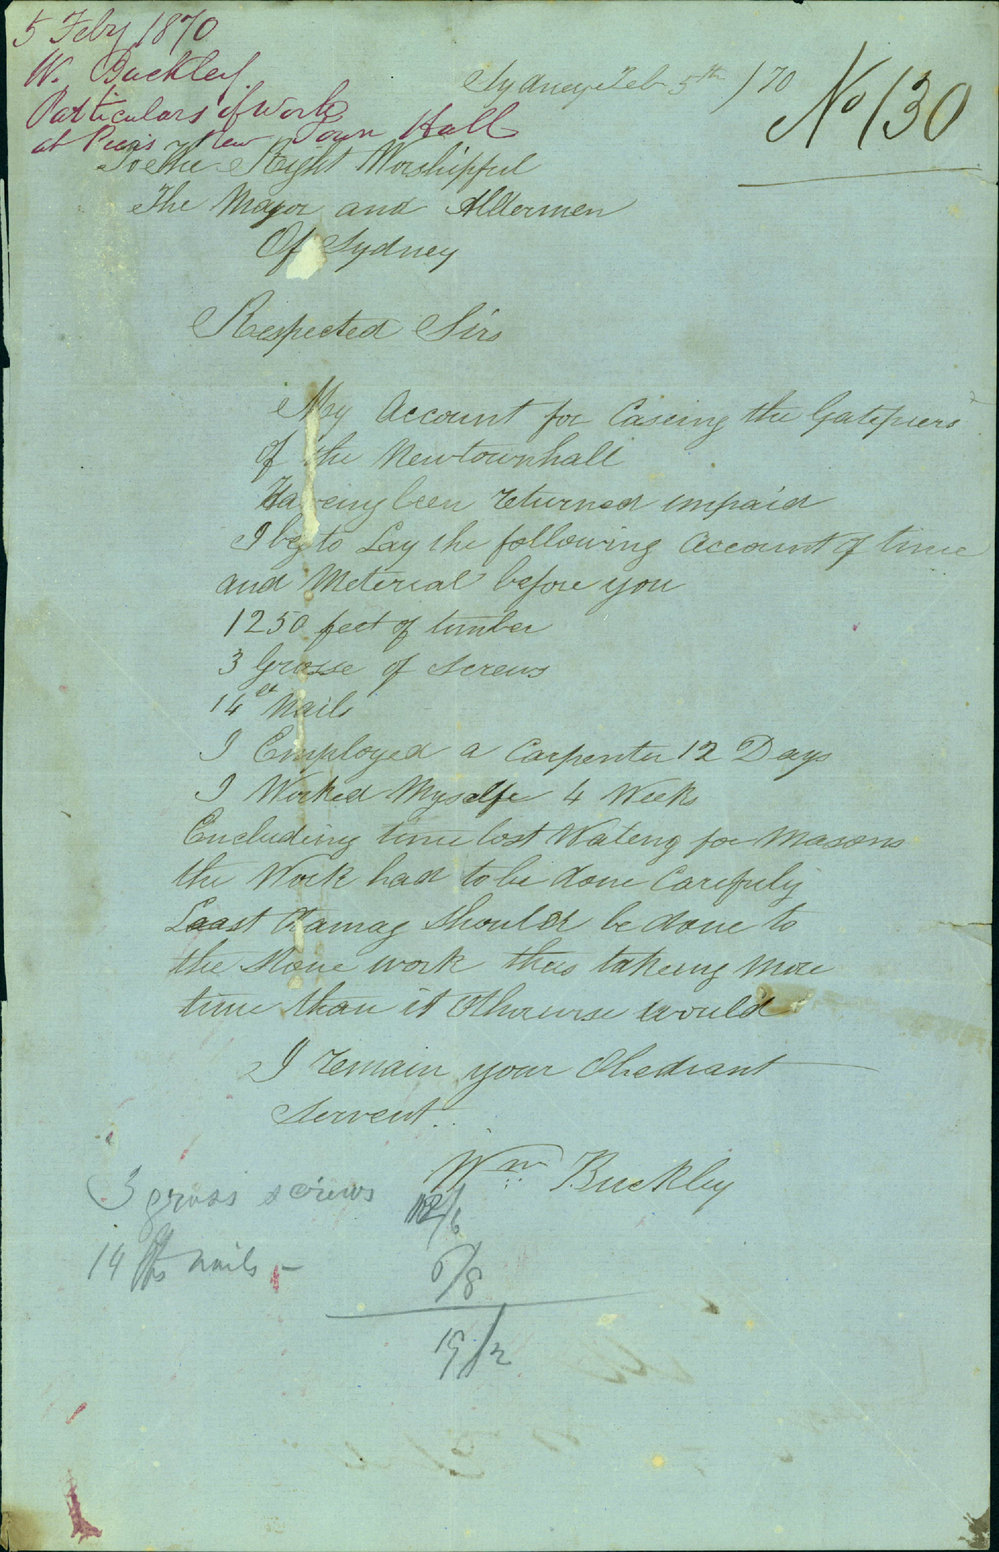 5 Feby 1870
W. Buckley
Particulars of work
at Piers New Town Hall
Sydney Feb 5th /70
No 130
To the Right Worshipful
The Mayor and Alldermen
Of Sydney
Respected Sirs
My Account for Caseing the Gatepiers
of the Newtownhall
Haveing been returned unpaid
I beg to Lay the following Account of time
and Meterial before you
1250 feet of timber
3 Grosse of Screws
14 Nails
I Employed a Carpenter 12 Days
I Worked Myselfe 4 Weeks
Encluding time lost Wateng for Masons
the Work had to be done Carefuly
Least damag Should be done to
the Stone work thus takeing More
time than it Otherwise would
I remain your Obediant
Servent
Wm Buckley
3 gross screws 12/6
14 lbs nails - 6/8
19/2